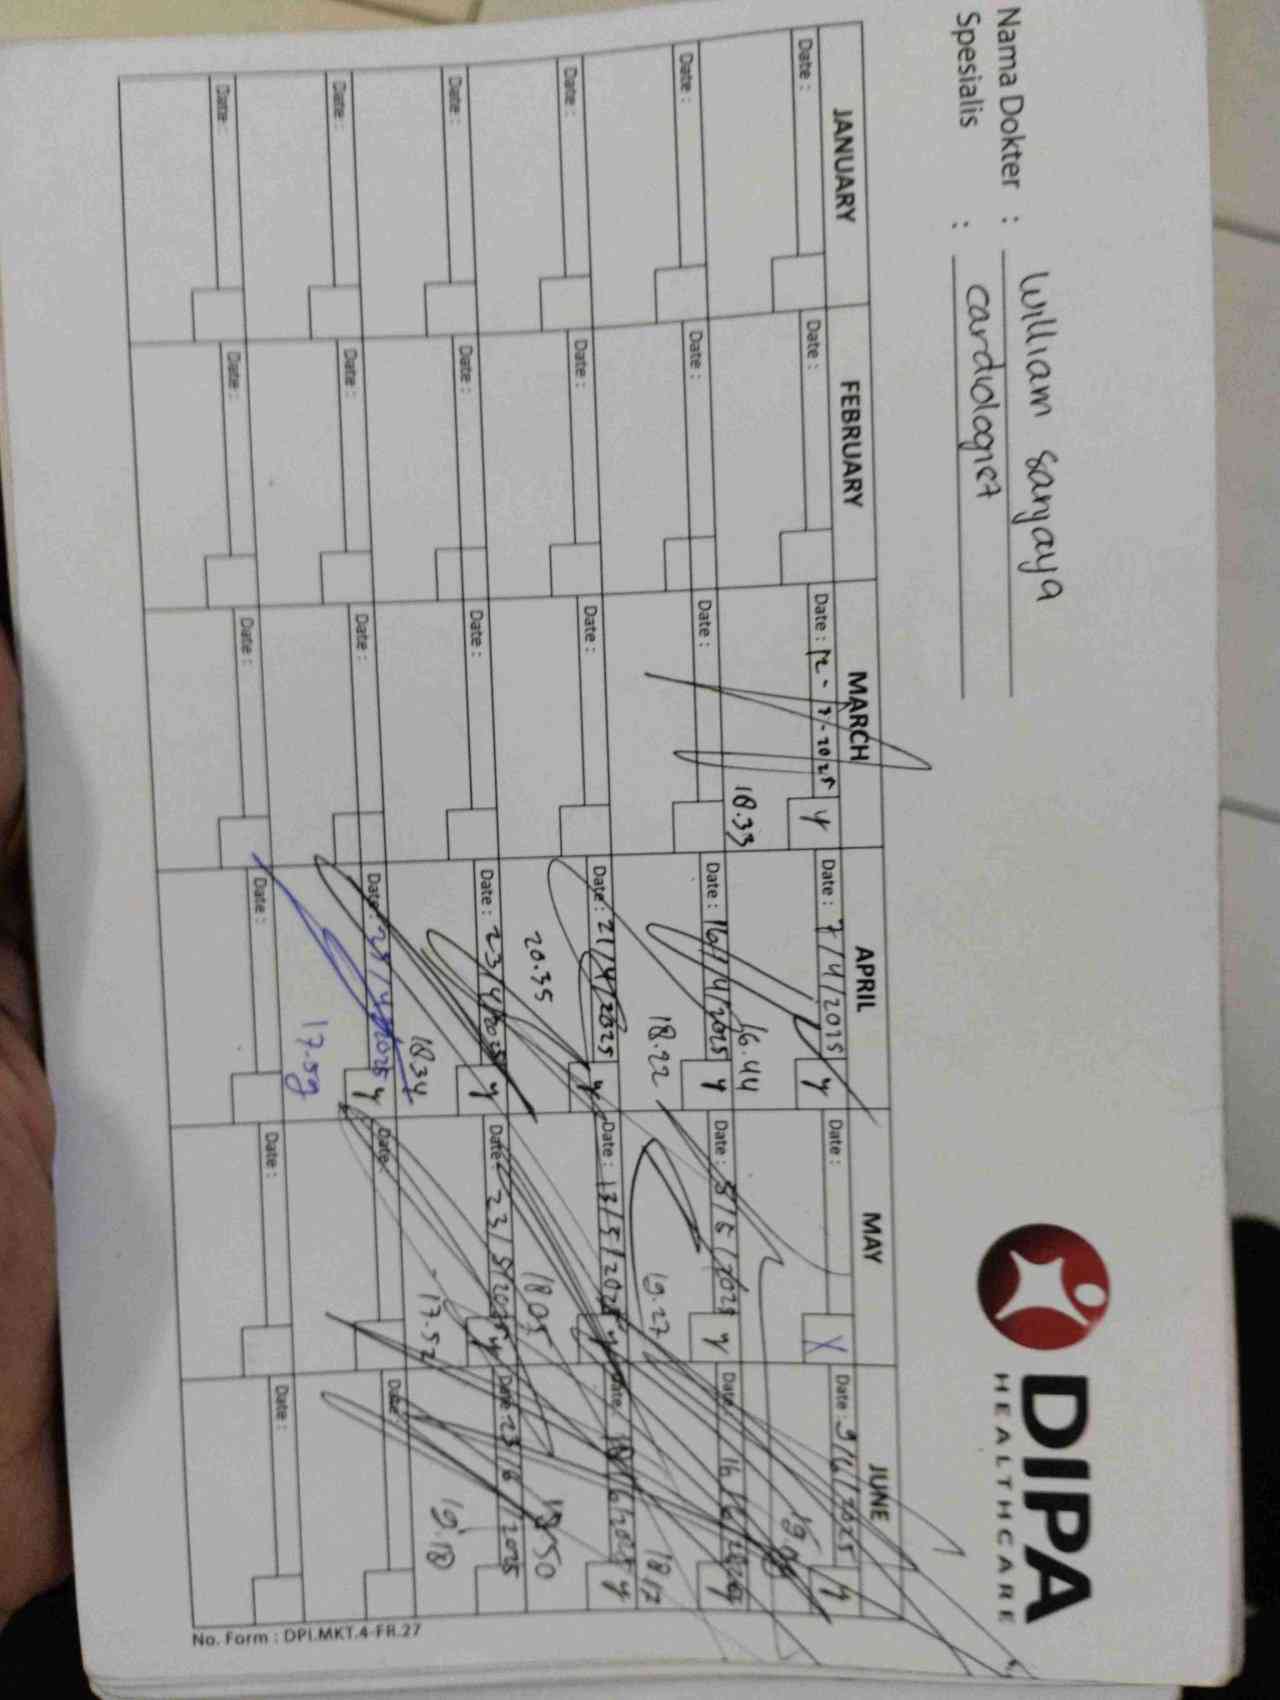 DIPA
HEALTHCARE
Nama Dokter : William Sanjaya
Spesialis : cardiologist
JANUARY FEBRUARY MARCH APRIL MAY JUNE
Date : Date : Date : 12-3-2025 y Date : 7/4/2025 y Date : X Date : 9/6/2025 y
18.33 16.44 19.08
Date : Date : Date : Date : 16/4/2025 y Date : 5/5/2025 y Date : 16/6/2025 y
18.22 19.27 18.17
Date : Date : Date : Date : 21/4/2025 y Date : 13/5/2025 y Date : 18/6/2025 y
20.35 18.05 18.50
Date : Date : Date : Date : 23/4/2025 y Date : 23/5/2025 y Date : 23/6/2025
18.34 17.52 19.18
Date : Date : Date : Date : /4/2025 y Date : Date :
17.59
Date : Date : Date : Date : Date : Date :
No. Form : DPI.MKT.4-FR.27